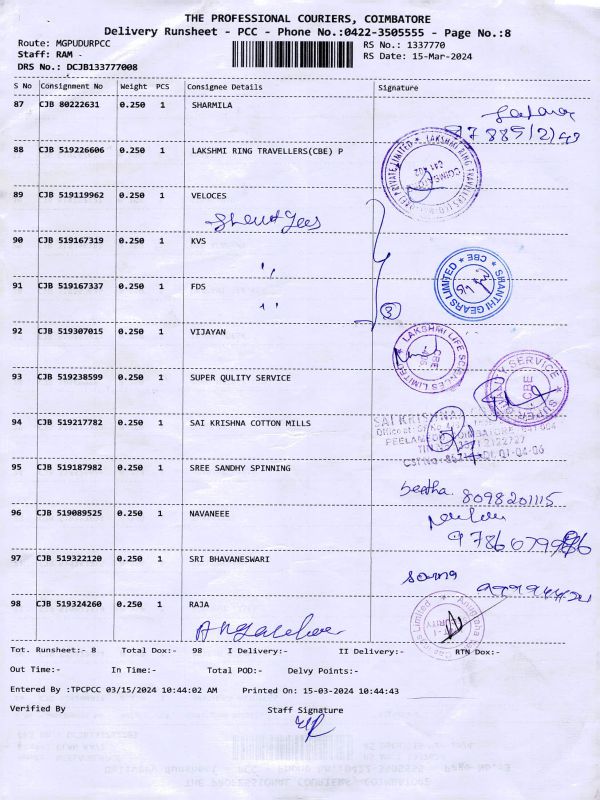 THE PROFESSIONAL COURIERS, COIMBATORE
Delivery Runsheet - PCC - Phone No.:0422-3505555 - Page No.:8
Route: MGPUDURPCC
RS No.: 1337770
Staff: RAM -
RS Date: 15-Mar-2024
DRS No.: DCJB133777008
S No Consignment No Weight PCS Consignee Details Signature
87 CJB 80222631 0.250 1 SHARMILA
88 CJB 519226606 0.250 1 LAKSHMI RING TRAVELLERS(CBE) P
89 CJB 519119962 0.250 1 VELOCES
90 CJB 519167319 0.250 1 KVS
SHANTHI GEARS LIMITED * CBE *
91 CJB 519167337 0.250 1 FDS
3
92 CJB 519307015 0.250 1 VIJAYAN
LAKSHMI LIFE SCIENCES LIMITED * CBE
93 CJB 519238599 0.250 1 SUPER QULITY SERVICE
SUPER QUALITY SERVICE * CBE
94 CJB 519217782 0.250 1 SAI KRISHNA COTTON MILLS
SAI KRISHNA
95 CJB 519187982 0.250 1 SREE SANDHY SPINNING
8098201115
96 CJB 519089525 0.250 1 NAVANEEE
97 CJB 519322120 0.250 1 SRI BHAVANESWARI
98 CJB 519324260 0.250 1 RAJA
Tot. Runsheet:- 8 Total Dox:- 98 I Delivery:- II Delivery:- RTN Dox:-
Out Time:- In Time:- Total POD:- Delvy Points:-
Entered By :TPCPCC 03/15/2024 10:44:02 AM Printed On: 15-03-2024 10:44:43
Verified By Staff Signature